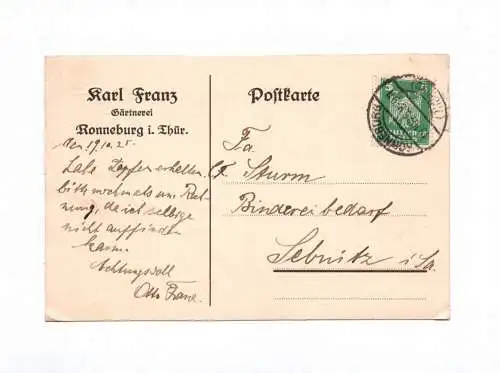 Karl Franz
Gärtnerei
Ronneburg i. Thür.
den 19.10.25
Habe Zapfen erhalten,
bitte nochmals um Rech-
nung, da ich selbige
nicht auffinden
kann
Achtungsvoll
Otto Franz.
Postkarte
5
RONNEBURG
Fa.
Sturm
Bindereibedarf
Sebnitz i. Sa.